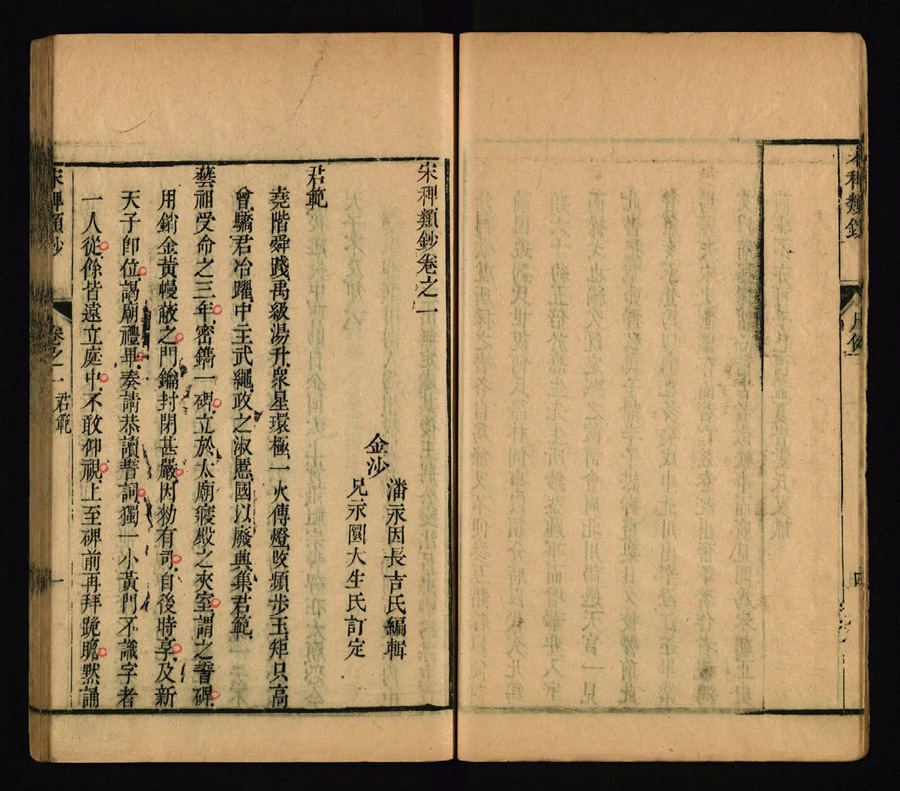 宋稗類鈔
凡例
四
宋稗類鈔卷之一
潘永因長吉氏編輯
金沙
兄永圜大生氏訂定
君範
堯階舜踐禹級湯升衆星環極一火傳燈步玉矩只高
曾驕君冶躍中主武繩政之淑慝國以廢興集君範
藝祖受命之三年密鐫一碑立於太廟寢殿之夾室謂之誓碑
用銷金黃幔蔽之門鑰封閉甚嚴因勑有司自後時享及新
天子卽位謁廟禮畢奏請恭讀誓詞獨一小黃門不識字者
一人從餘皆遠立庭中不敢仰視上至碑前再拜跪瞻默誦
宋稗類鈔
卷之一 君範
一